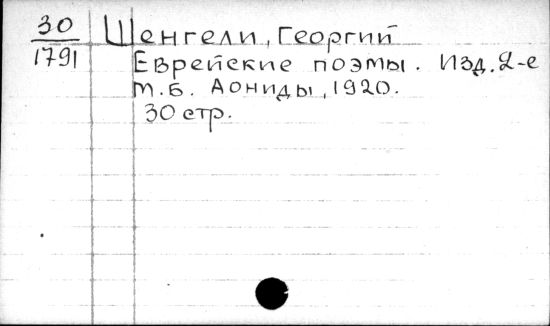 30
1791
Шенгели, Георгий
Еврейские поэмы. Изд. 2-е
М.Б. Аониды, 1920.
30 стр.